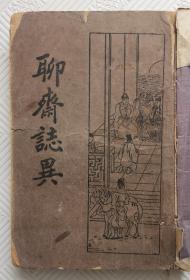 聊齋誌異